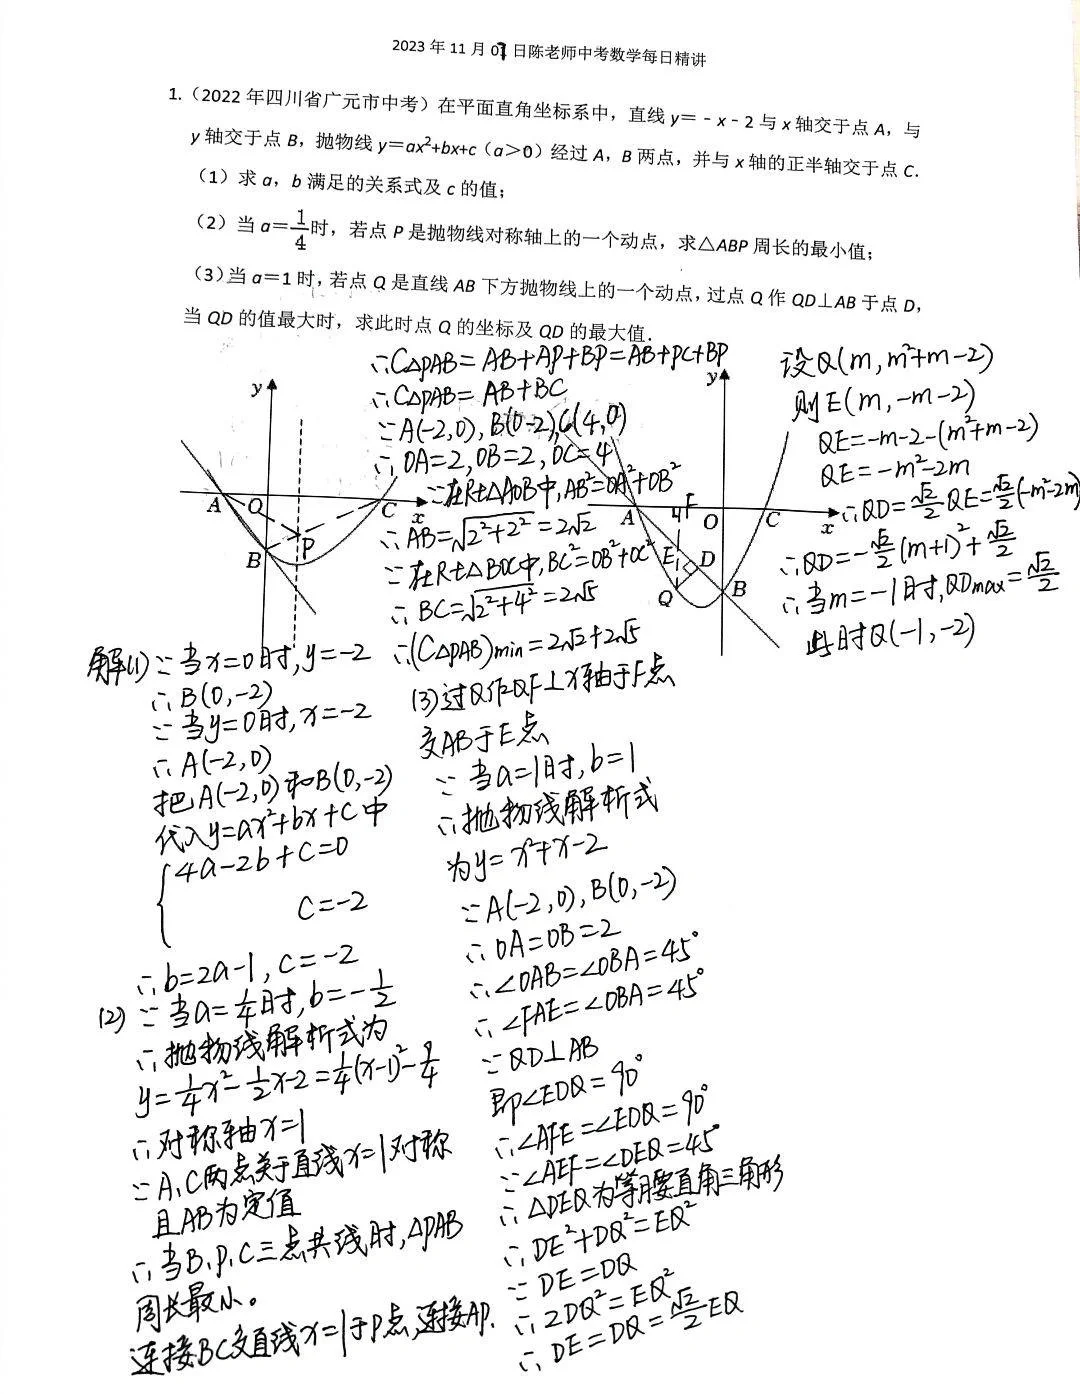 2023 年 11 月 07 日陈老师中考数学每日精讲
1.（2022 年四川省广元市中考）在平面直角坐标系中，直线 y＝﹣x﹣2 与 x 轴交于点 A，与
y 轴交于点 B，抛物线 y＝ax²+bx+c（a＞0）经过 A，B 两点，并与 x 轴的正半轴交于点 C.
（1）求 a，b 满足的关系式及 c 的值；
（2）当 a＝1/4时，若点 P 是抛物线对称轴上的一个动点，求△ABP 周长的最小值；
（3）当 a＝1 时，若点 Q 是直线 AB 下方抛物线上的一个动点，过点 Q 作 QD⊥AB 于点 D，
当 QD 的值最大时，求此时点 Q 的坐标及 QD 的最大值.
y
A
O
C
x
B
P
y
A
F
O
C
x
E
D
Q
B
解(1)∵当x=0时,y=-2
∴B(0,-2)
∵当y=0时,x=-2
∴A(-2,0)
把A(-2,0)和B(0,-2)
代入y=ax²+bx+c中
{4a-2b+c=0
c=-2
∴b=2a-1,c=-2
(2)∵当a=1/4时,b=-1/2
∴抛物线解析式为
y=1/4x²-1/2x-2=1/4(x-1)²-9/4
∴对称轴x=1
∵A、C两点关于直线x=1对称
且AB为定值
∴当B、P、C三点共线时,△PAB
周长最小。
连接BC交直线x=1于P点,连接AP.
∴C△PAB=AB+AP+BP=AB+PC+BP
∴C△PAB=AB+BC
∵A(-2,0),B(0-2),C(4,0)
∴OA=2,OB=2,OC=4
∵在Rt△AOB中,AB²=OA²+OB²
∴AB=√2²+2²=2√2
∵在Rt△BOC中,BC²=OB²+OC²
∴BC=√2²+4²=2√5
∴(C△PAB)min=2√2+2√5
(3)过Q作QF⊥x轴于F点
交AB于E点
∵当a=1时,b=1
∴抛物线解析式
为y=x²+x-2
∵A(-2,0),B(0,-2)
∴OA=OB=2
∴∠OAB=∠OBA=45°
∴∠FAE=∠OBA=45°
∵QD⊥AB
即∠EDQ=90°
∴∠AFE=∠EDQ=90°
∵∠AEF=∠DEQ=45°
∴△DEQ为等腰直角三角形
∴DE²+DQ²=EQ²
∵DE=DQ
∴2DQ²=EQ²
∴DE=DQ=√2/2EQ
设Q(m,m²+m-2)
则E(m,-m-2)
QE=-m-2-(m²+m-2)
QE=-m²-2m
∴QD=√2/2QE=√2/2(-m²-2m)
∴QD=-√2/2(m+1)²+√2/2
∴当m=-1时,QDmax=√2/2
此时Q(-1,-2)